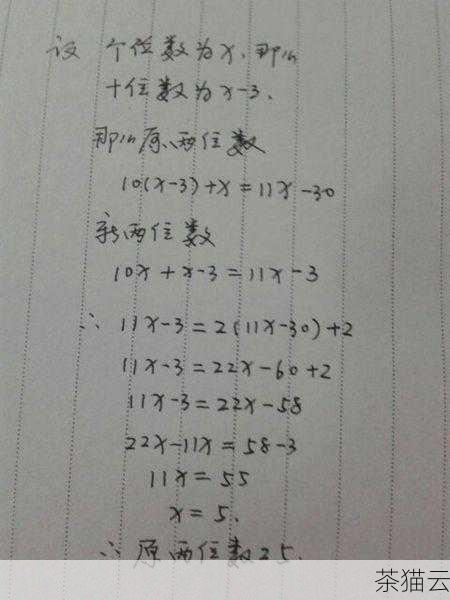 设 个位数为x,那么
十位数为x-3,
那么原两位数
10(x-3)+x=11x-30
新两位数
10x+x-3=11x-3
∴ 11x-3=2(11x-30)+2
11x-3=22x-60+2
11x-3=22x-58
22x-11x=58-3
11x=55
x=5.
∴ 原两位数25.
茶猫云